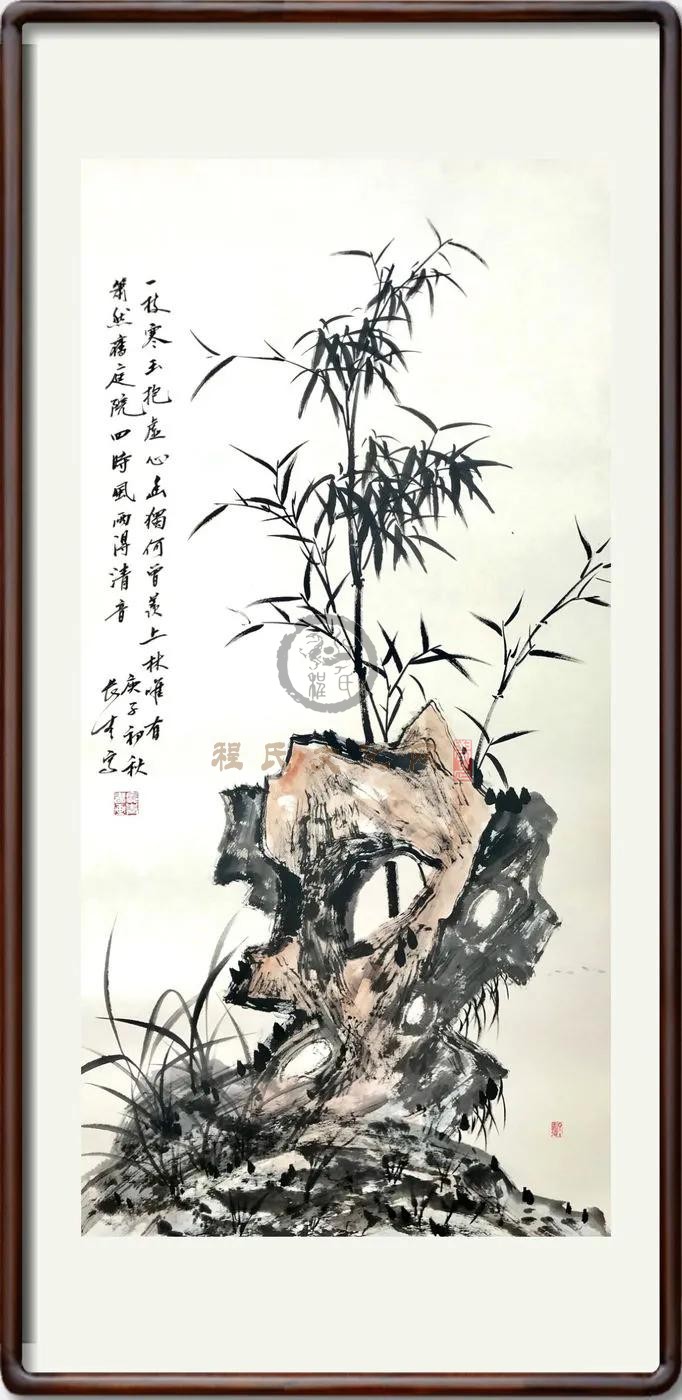 一枝寒玉抱虚心幽獨何曾羡上林唯有
蕭然舊庭院四時風雨得清音
庚子初秋
長才寫
程氏